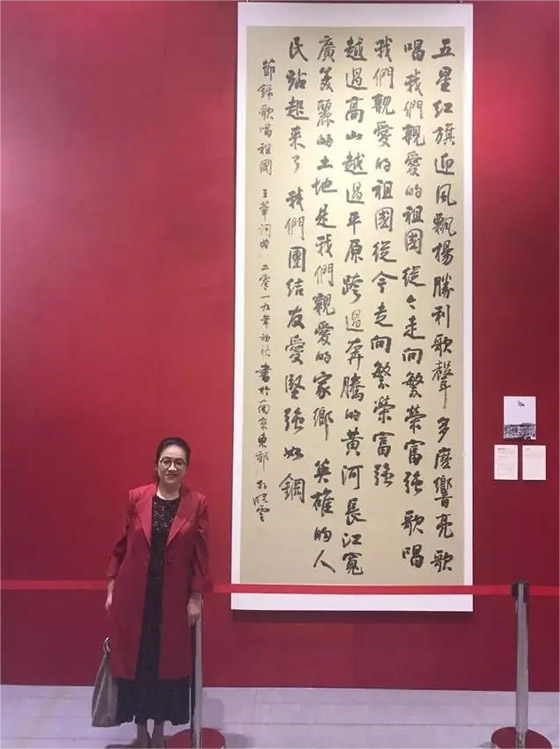 五星紅旗迎風飄揚勝利歌聲多麼響亮歌
唱我們親愛的祖國從今走向繁榮富強 歌唱
我們親愛的祖國從今走向繁榮富強
越過高山越過平原跨過奔騰的黃河長江寬
廣美麗的土地是我們親愛的家鄉 英雄的人
民站起來了我們團結友愛堅強如鋼
節錄歌唱祖國 王莘詞曲 二零一九年初秋 書於南京東郊 孫曉雲